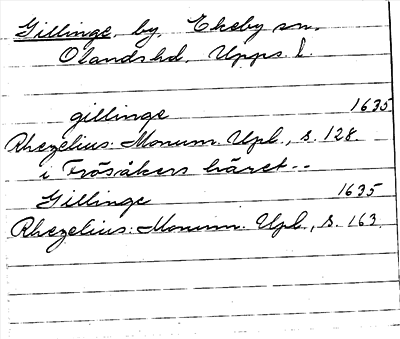 Gillinge, by, Ekeby sn.
Olands hd. Upps. l.
gillinge 1635
Rhezelius: Monum. Upl., s. 128.
i Frösåkers häret--
Gillinge 1635
Rhezelius: Monum. Upl., s. 163.